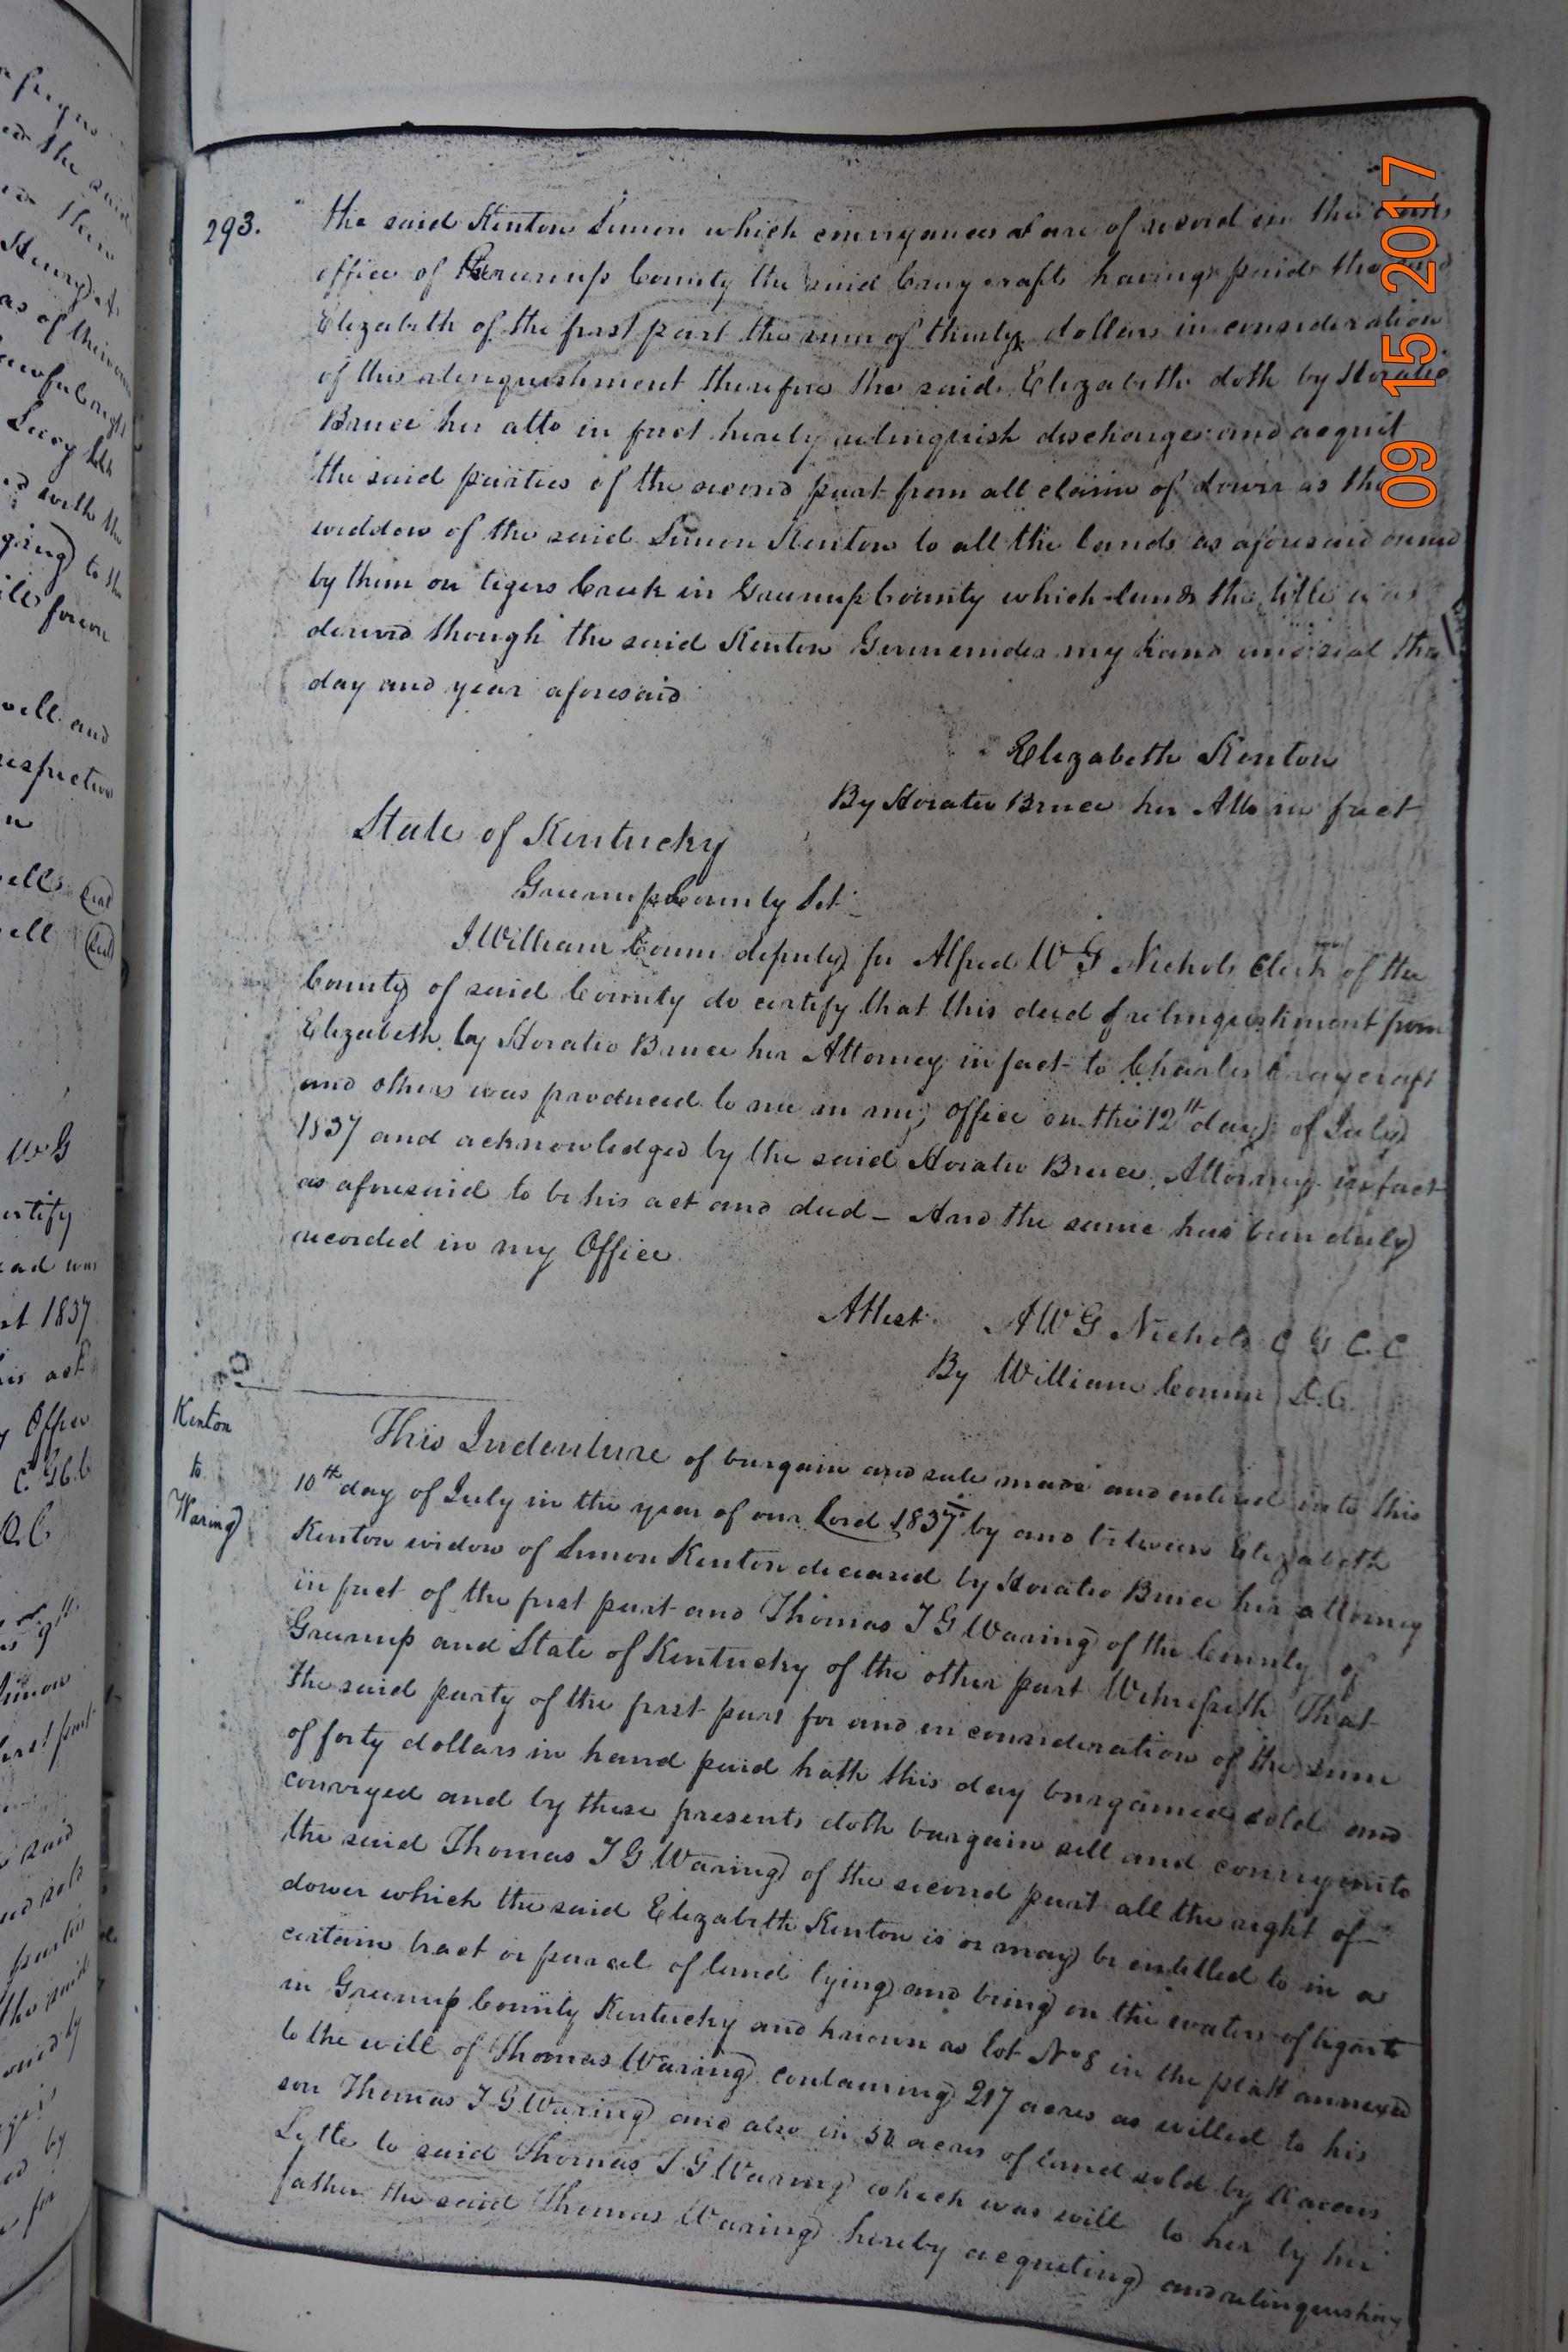 09 15 2017
293.
the said Kenton Simon which conveyances at are of record in the clerks
office of Greenup County the said Craycraft having paid the said
Elizabeth of the first part the sum of thirty dollars in consideration
of this relinquishment therefore the said Elizabeth doth by Horatio
Bruce her atto in fact hereby relinquish discharge and acquit
the said parties of the second part from all claim of dower as the
widdow of the said Simon Kenton to all the lands as aforesaid owned
by them on tigers Creek in Greenup County which lands the title was
derived though the said Kenton Given under my hand and seal the
day and year aforesaid
Elizabeth Kenton
By Horatio Bruce her Atto in fact
State of Kentucky
Greenup County Sct
I William Corum deputy for Alfred W G Nichols Clerk of the
County of said County do certify that this deed of relinquishment from
Elizabeth by Horatio Bruce her Attorney in fact to Charles Craycraft
and others was produced to me in my office on the 12th day of July
1837 and acknowledged by the said Horatio Bruce Attorney in fact
as aforesaid to be his act and deed – And the same has been duly
recorded in my Office
Attest A W G Nichols C G C. C
By William Corum D.C.
Kenton
to
Waring
This Indenture of bargain and sale made and entered into this
10th day of July in the year of our Lord 1837 by and between Elizabeth
Kenton widow of Simon Kenton deceased by Horatio Bruce her attorney
in fact of the first part and Thomas T G Waring of the County of
Greenup and State of Kentucky of the other part Witnesseth That
the said party of the first part for and in consideration of the sum
of forty dollars in hand paid hath this day bargained sold and
conveyed and by these presents doth bargain sell and convey unto
the said Thomas T G Waring of the second part all the right of
dower which the said Elizabeth Kenton is or may be entitled to in a
certain tract or parcel of land lying and being on the waters of tigarts
in Greenup County Kentucky and known as lot No 8 in the platt annexed
to the will of Thomas Waring containing 217 acres as willed to his
son Thomas T G Waring and also in 50 acres of land sold by
Lytle to said Thomas T G Waring which was will to her by her
father the said Thomas Waring hereby acquiting and relinquishing